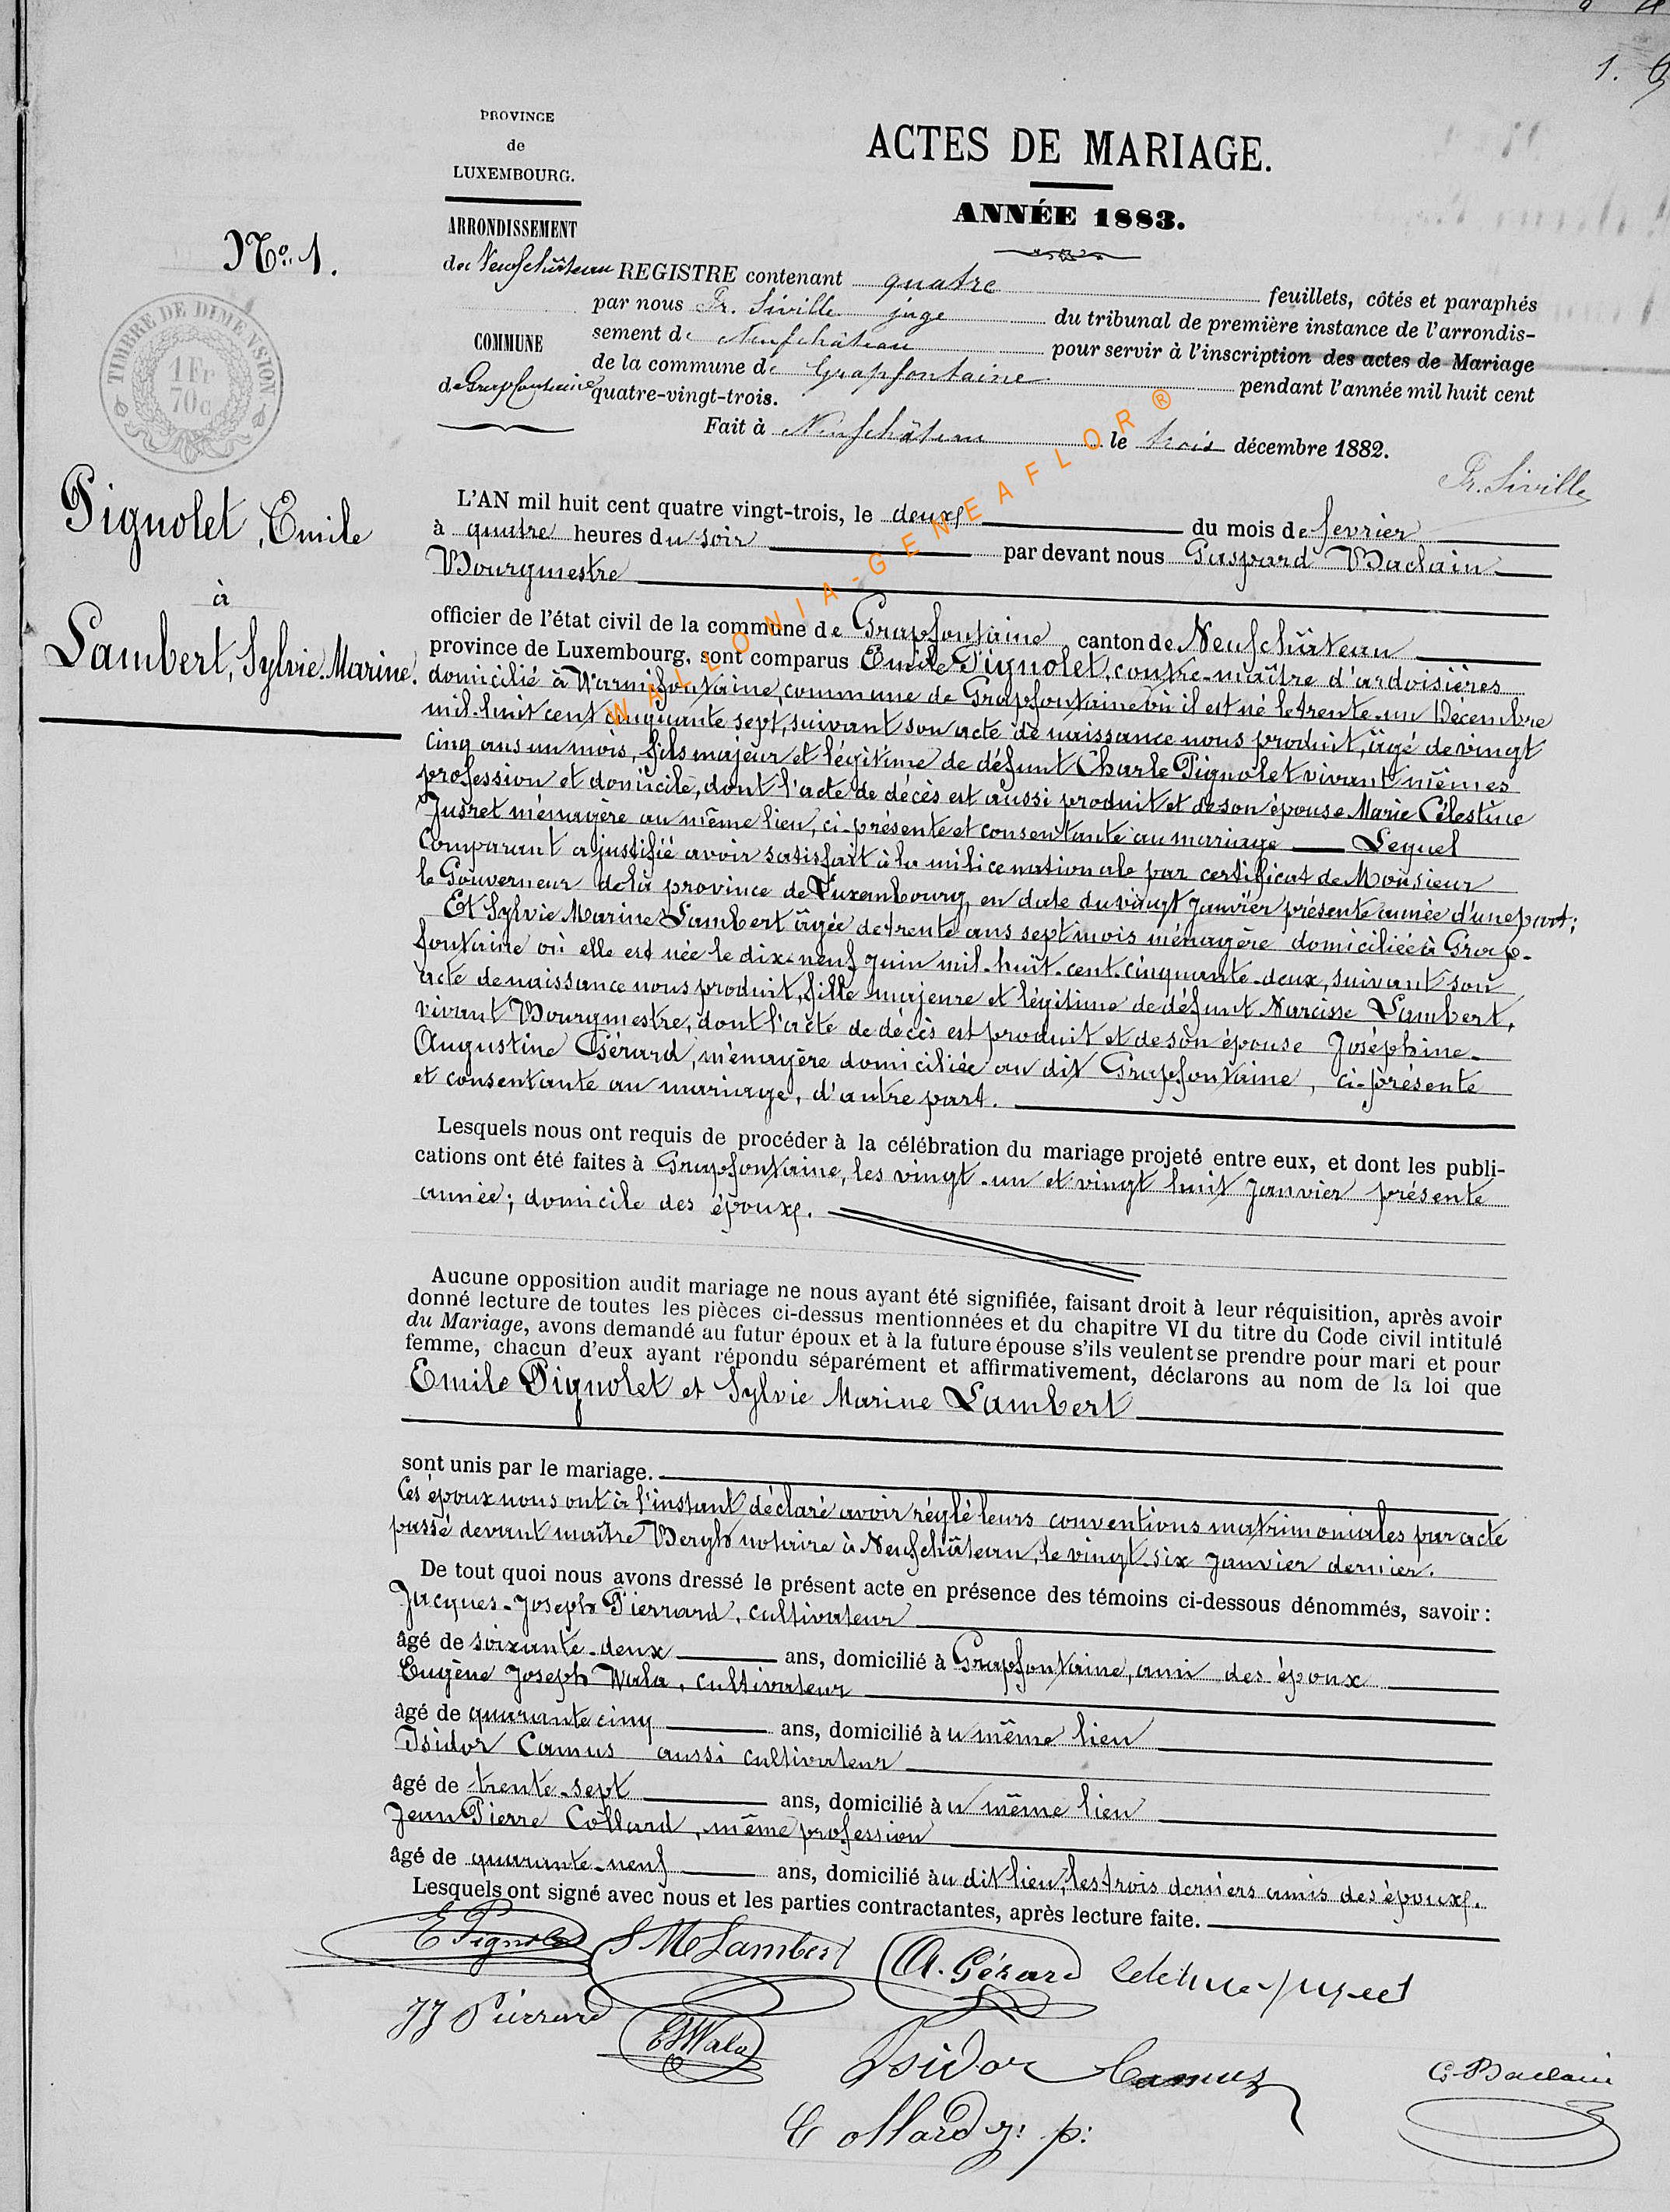 1.
PROVINCE
de
LUXEMBOURG.
ARRONDISSEMENT
de Neufchâteau
COMMUNE
de Grapfontaine
ACTES DE MARIAGE.
ANNÉE 1883.
REGISTRE contenant quatre feuillets, côtés et paraphés
par nous Fr. Siville juge du tribunal de première instance de l'arrondis-
sement de Neufchâteau pour servir à l'inscription des actes de Mariage
de la commune de Grapfontaine pendant l'année mil huit cent
quatre-vingt-trois.
Fait à Neufchâteau le trois décembre 1882.
Fr. Siville
No. 1.
TIMBRE DE DIMENSION
1 Fr
70c
Pignolet, Emile
à
Lambert, Sylvie Marine.
L'AN mil huit cent quatre vingt-trois, le deux du mois de fevrier
à quatre heures du soir par devant nous Gaspard Baclain
Bourgmestre
officier de l'état civil de la commune de Grapfontaine canton de Neufchâteau
province de Luxembourg, sont comparus Emile Pignolet, contre-maître d'ardoisières
domicilié à Warmifontaine, commune de Grapfontaine où il est né le trente-un Décembre
mil-huit cent cinquante sept, suivant son acte de naissance nous produit, âgé de vingt
cinq ans un mois, fils majeur et légitime de défunt Charle Pignolet vivant mêmes
profession et domicile, dont l'acte de décès est aussi produit et de son épouse Marie Célestine
Jusret ménagère au même lieu, ci-présente et consentante au mariage — Lequel
Comparant a justifié avoir satisfait à la milice nationale par certificat de Monsieur
le Gouverneur de la province de Luxembourg, en date du vingt janvier présente année d'une part;
Et Sylvie Marine Lambert âgée de trente ans sept mois ménagère domiciliée à Grap-
fontaine où elle est née le dix-neuf juin mil-huit-cent-cinquante-deux, suivant son
acte de naissance nous produit, fille majeure et légitime de défunt Narcisse Lambert,
vivant Bourgmestre, dont l'acte de décès est produit et de son épouse Joséphine-
Augustine Gérard, ménagère domiciliée au dit Grapfontaine, ci-présente
et consentante au mariage, d'autre part.
Lesquels nous ont requis de procéder à la célébration du mariage projeté entre eux, et dont les publi-
cations ont été faites à Grapfontaine, les vingt-un et vingt huit janvier présente
année; domicile des époux.
Aucune opposition audit mariage ne nous ayant été signifiée, faisant droit à leur réquisition, après avoir
donné lecture de toutes les pièces ci-dessus mentionnées et du chapitre VI du titre du Code civil intitulé
du Mariage, avons demandé au futur époux et à la future épouse s'ils veulent se prendre pour mari et pour
femme, chacun d'eux ayant répondu séparément et affirmativement, déclarons au nom de la loi que
Emile Pignolet et Sylvie Marine Lambert
sont unis par le mariage.
Ces époux nous ont à l'instant déclaré avoir réglé leurs conventions matrimoniales par acte
passé devant maître Bergh notaire à Neufchâteau, le vingt-six janvier dernier.
De tout quoi nous avons dressé le présent acte en présence des témoins ci-dessous dénommés, savoir:
Jacques-Joseph Pierrard, cultivateur
âgé de soixante-deux ans, domicilié à Grapfontaine, ami des époux
Eugène Joseph Wala, cultivateur
âgé de quarante cinq ans, domicilié à u même lieu
Isidor Camus aussi cultivateur
âgé de trente-sept ans, domicilié à u même lieu
Jean Pierre Collard, même profession
âgé de quarante-neuf ans, domicilié à u dit lieu, les trois derniers amis des époux.
Lesquels ont signé avec nous et les parties contractantes, après lecture faite.
E Pignolet S M Lambert A. Gérard Celestine Jusret
JJ Pierrard EJWala Isidor Camus G. Baclain
Collard J: p:
WALLONIA-GENEAFLOR ®